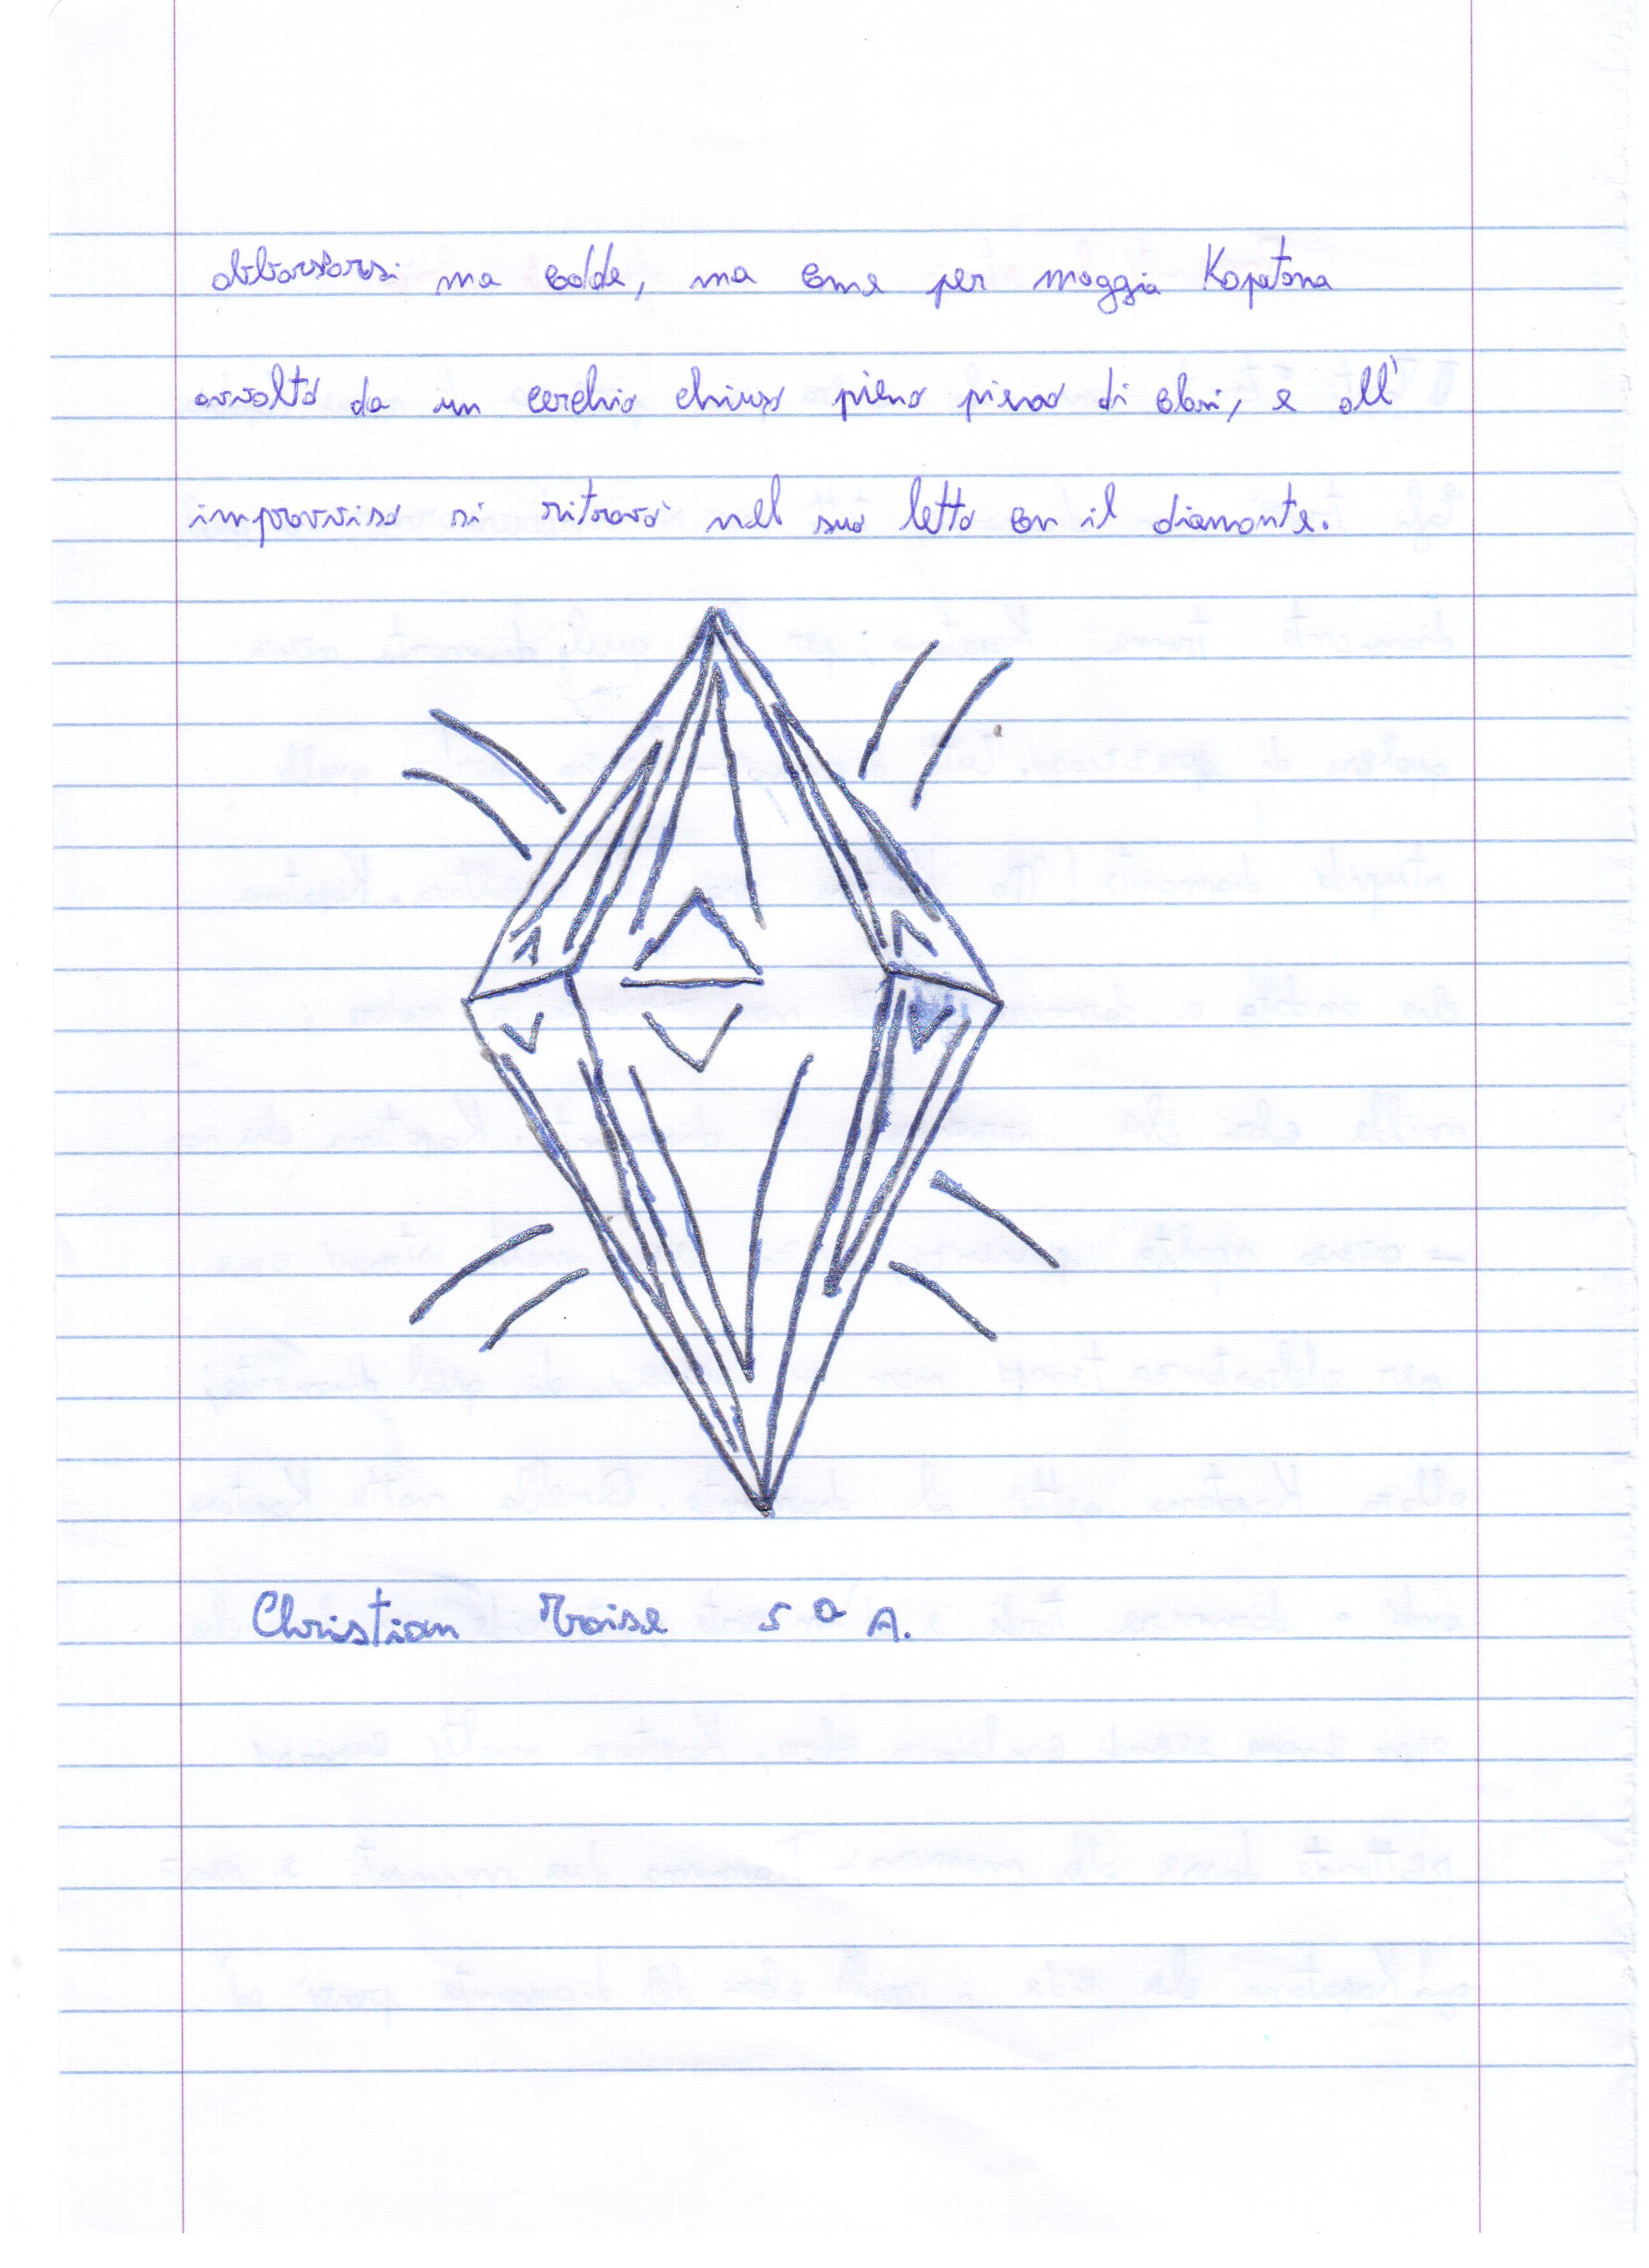 abbassarsi ma cadde, ma come per maggia Kapatona
avvolto da un cerchio chiuso pieno pieno di colori, e all'
improvviso si ritrovò nel suo letto con il diamante.
Christian 5ª A.